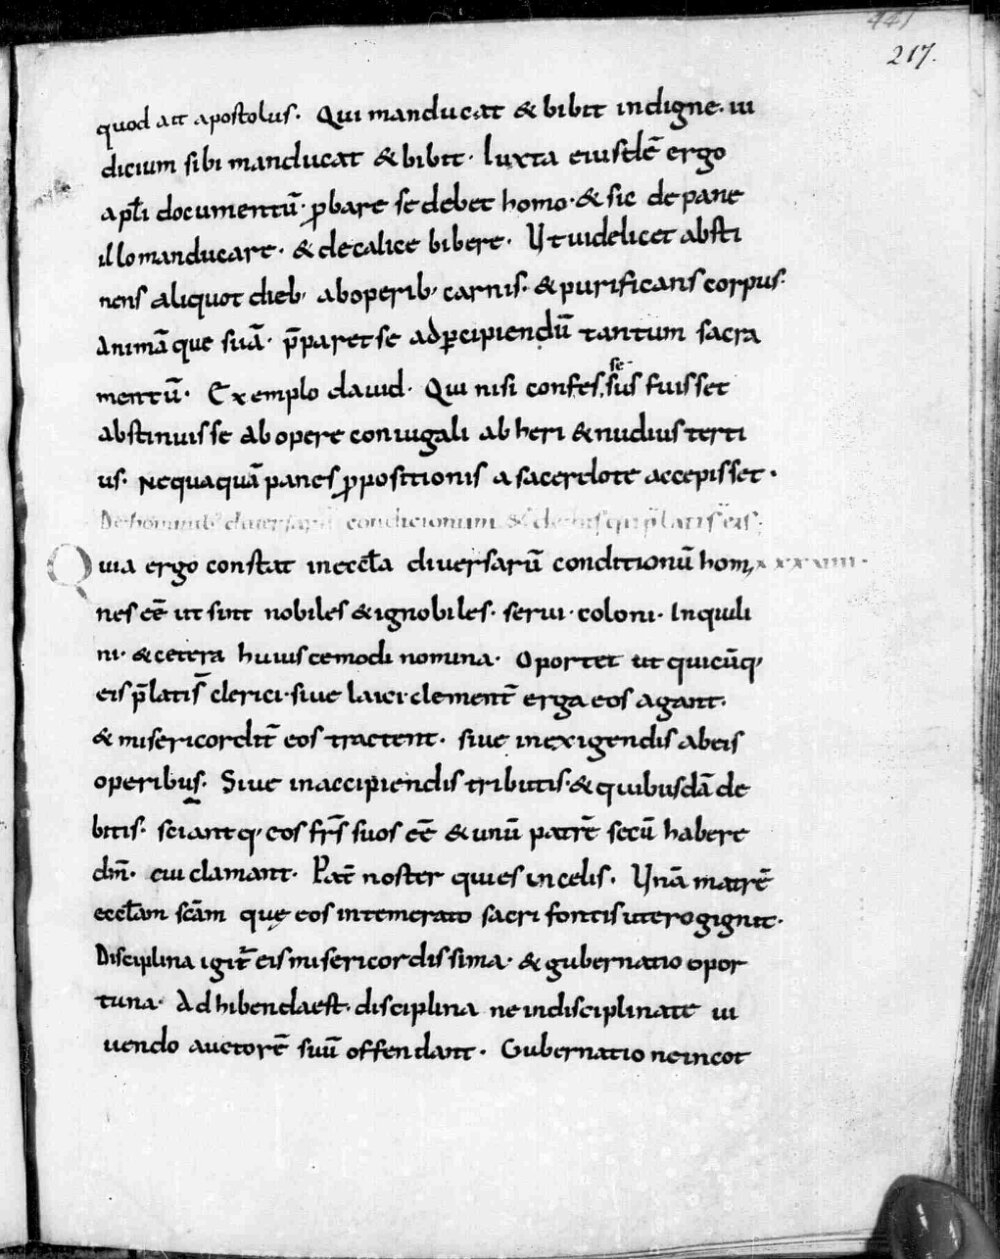 441
217.
quod ait apostolus. Qui manducat & bibit indigne. iu
dicium sibi manducat & bibit. Iuxta eiusdē ergo
apłi documentū. p̱bare se debet homo. & sic de pane
illo manducare. & de calice bibere. Ut uidelicet absti
nens aliquot dieb; ab operib; carnis. & purificans corpus.
Animā que suā. p̄paret se ad ꝑcipiendū tantum sacra
mentū. Exemplo dauid. Qui nisi confessus se fuisset
abstinuisse ab opere coniugali ab heri & nudius terti
us. Nequaquā panes ꝓpositionis a sacerdote accepisset.
De hominib; diuersarū condicionum & de his qui p̄lati s̄ eis.
Quia ergo constat in eccła diuersarū conditionū homi
nes eē ut sint nobiles & ignobiles. serui. coloni. Inquili
ni. & cetera huiuscemodi nomina. Oportet ut quicūq;
eis p̄lati s̄ clerici. siue laici. clement̄ erga eos agant.
& misericordit̄ eos tractent. siue in exigendis ab eis
operibus. Siue in accipiendis tributis. & quibusdā de
bitis. sciantq; eos fr̄s suos eē & unū patrē secū habere
dm̄. cui clamant. Pat̄ noster qui es in celis. Unā matrē
eccłam sc̄am que eos intemerato sacri fontis utero gignit.
Disciplina igit̄ eis misericordissima. & gubernatio opor
tuna. Adhibenda est. disciplina ne indisciplinate ui
uendo auctorē suū offendant. Gubernatio ne in cot